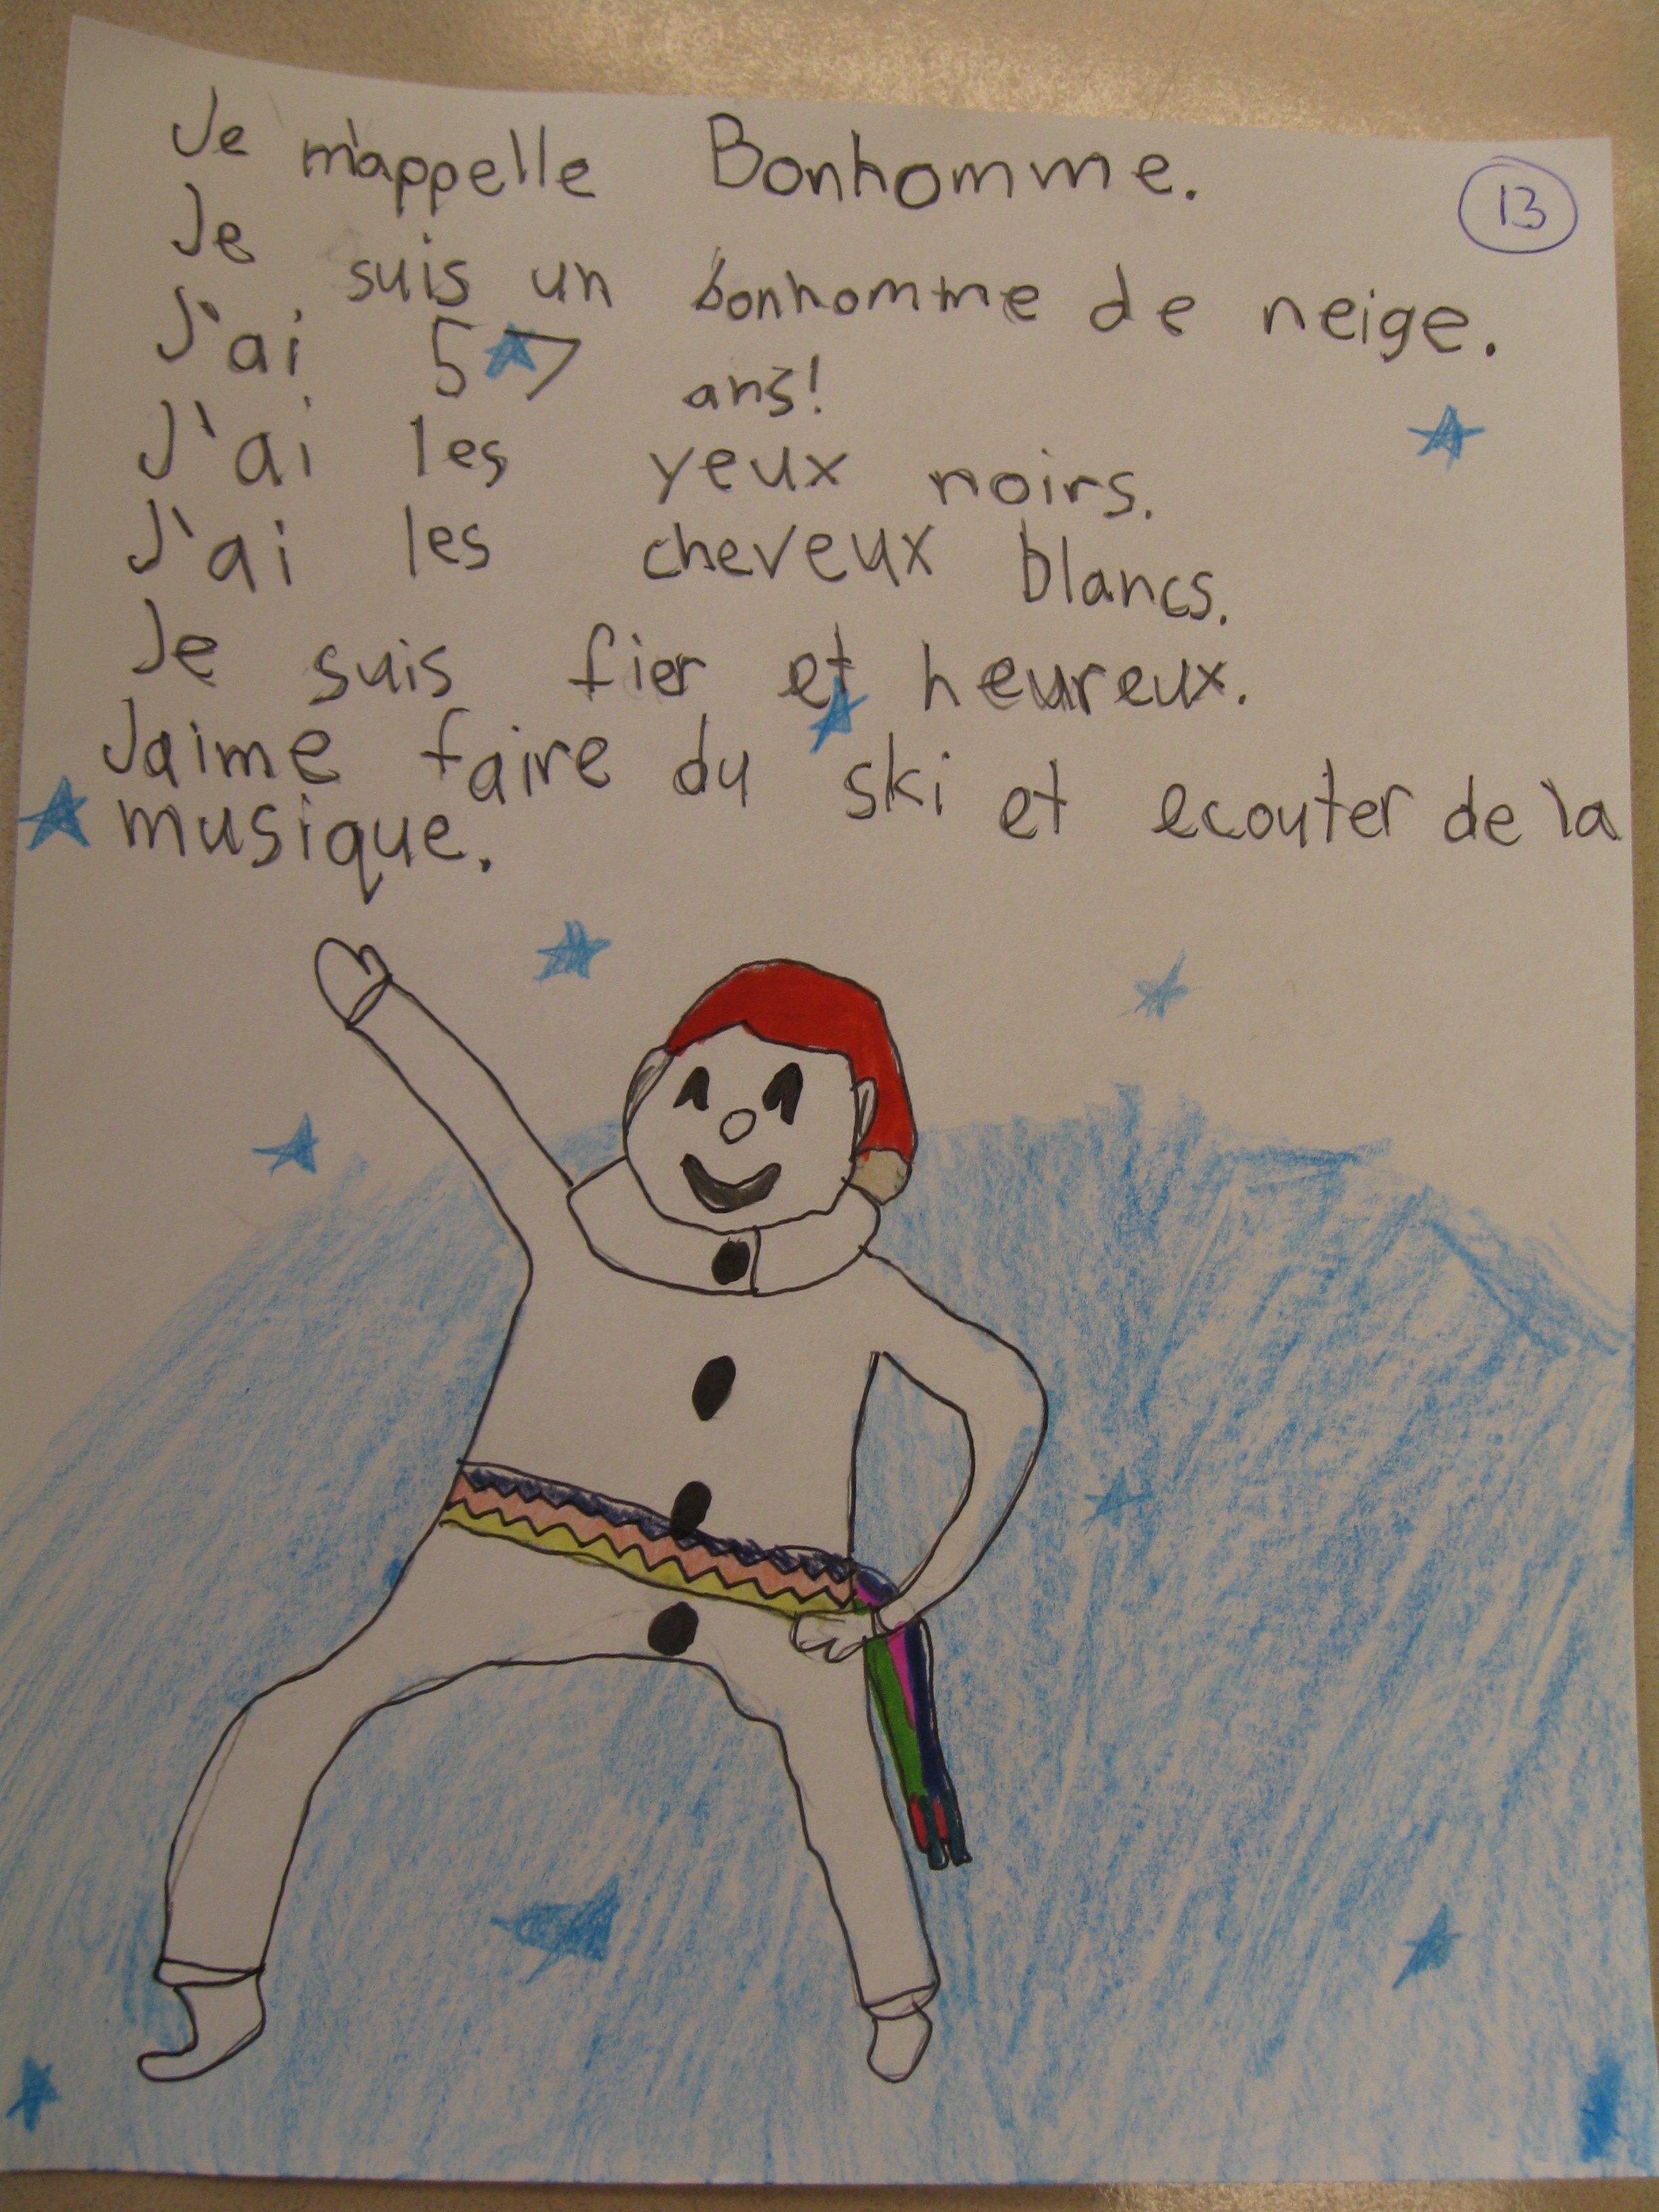 Je m'appelle Bonhomme.
13
Je suis un bonhomme de neige.
J'ai 57 ans!
J'ai les yeux noirs.
J'ai les cheveux blancs.
Je suis fier et heureux.
Jaime faire du ski et ecouter de la
musique.